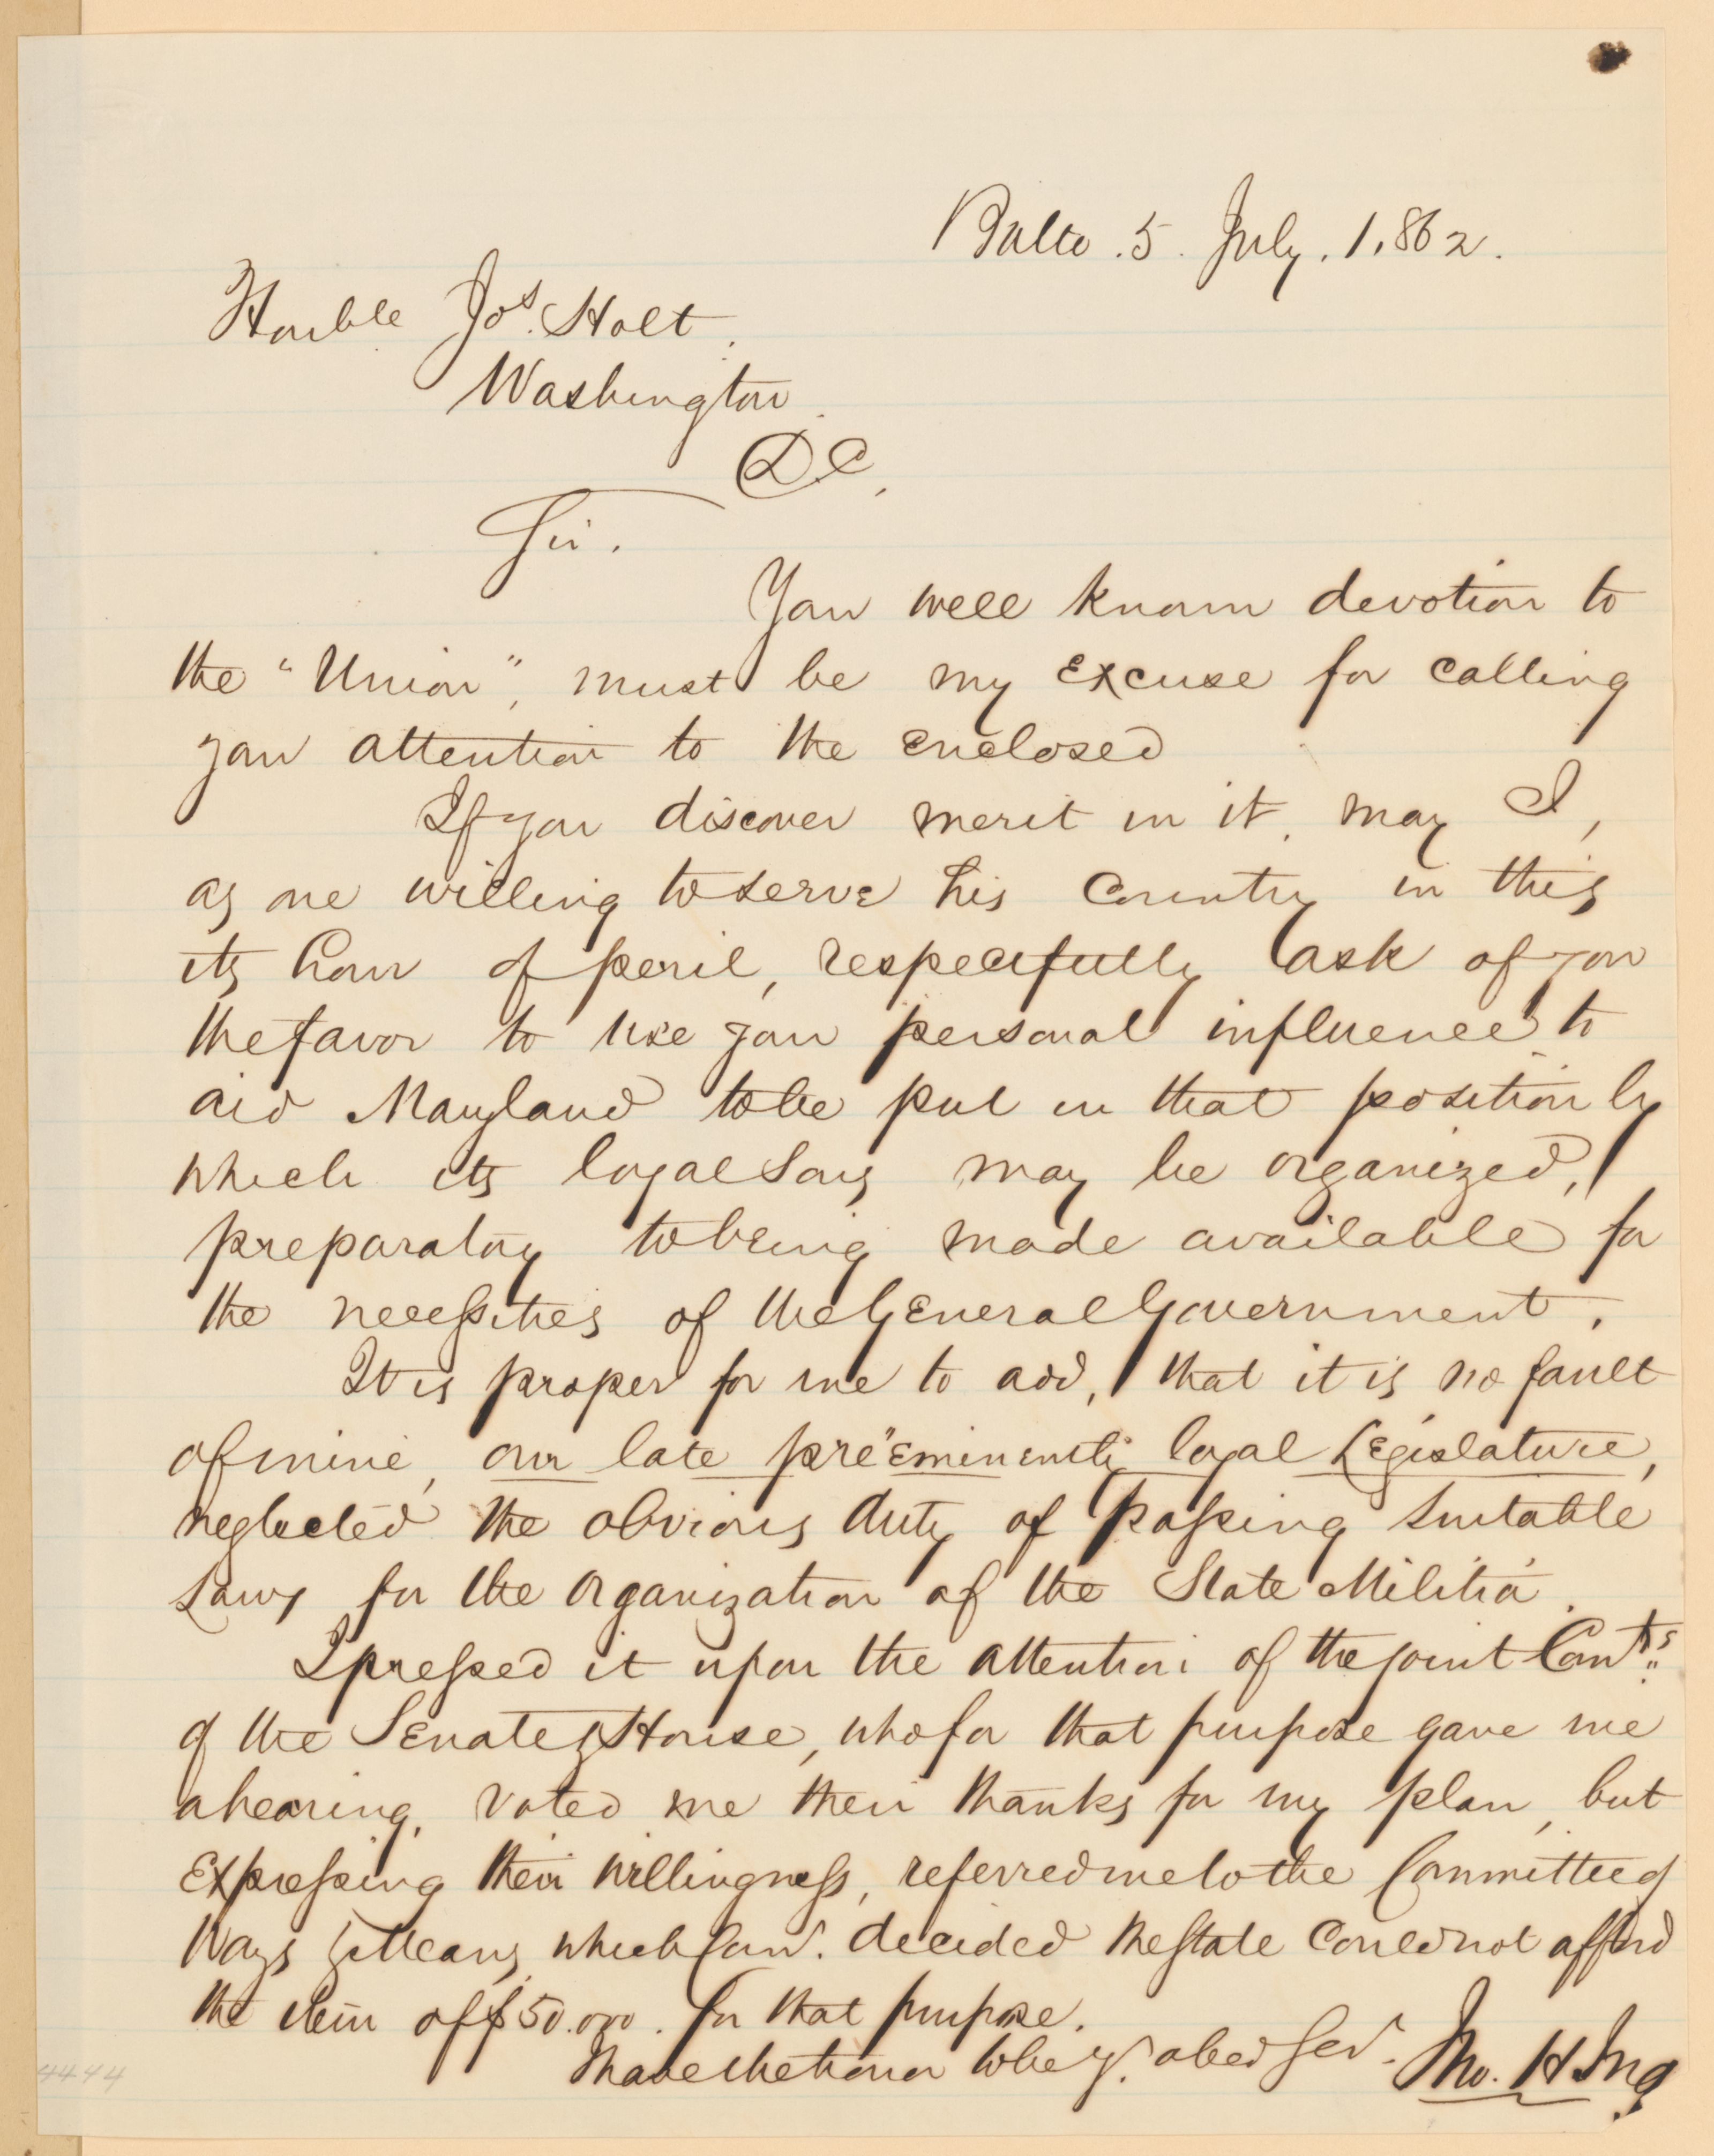 Balto. 5. July. 1.862.
Honble Jos. Holt.
Washington.
D.C,
Sir.
Your well known devotion to
the "Union", must be my Excuse for calling
your attention to the enclosed
If you discover merit in it, may I,
as one willing to serve his Country in this
its hour of peril, respectfully ask of you
the favor to use your personal influence to
aid Maryland to be put in that position by
which its loyal Sons may be organized,
preparatory to being made available for
the necessities of the General Government.
It is proper for me to add, that it is no fault
of mine, our late pre"eminently loyal Legislature,
neglected the obvious duty of passing suitable
Laws for the Organization of the State Militia.
I pressed it upon the attention of the joint Comts.
of the Senate & House, who for that purpose gave me
a hearing, voted me their thanks for my plan, but
Expressing their willingness, referred me to the Committee of
Ways & Means, which Com. decided the State Could not afford
the item of $50.000. for that purpose.
I have the honor to be yr. obed Servt. Jno. H
4444